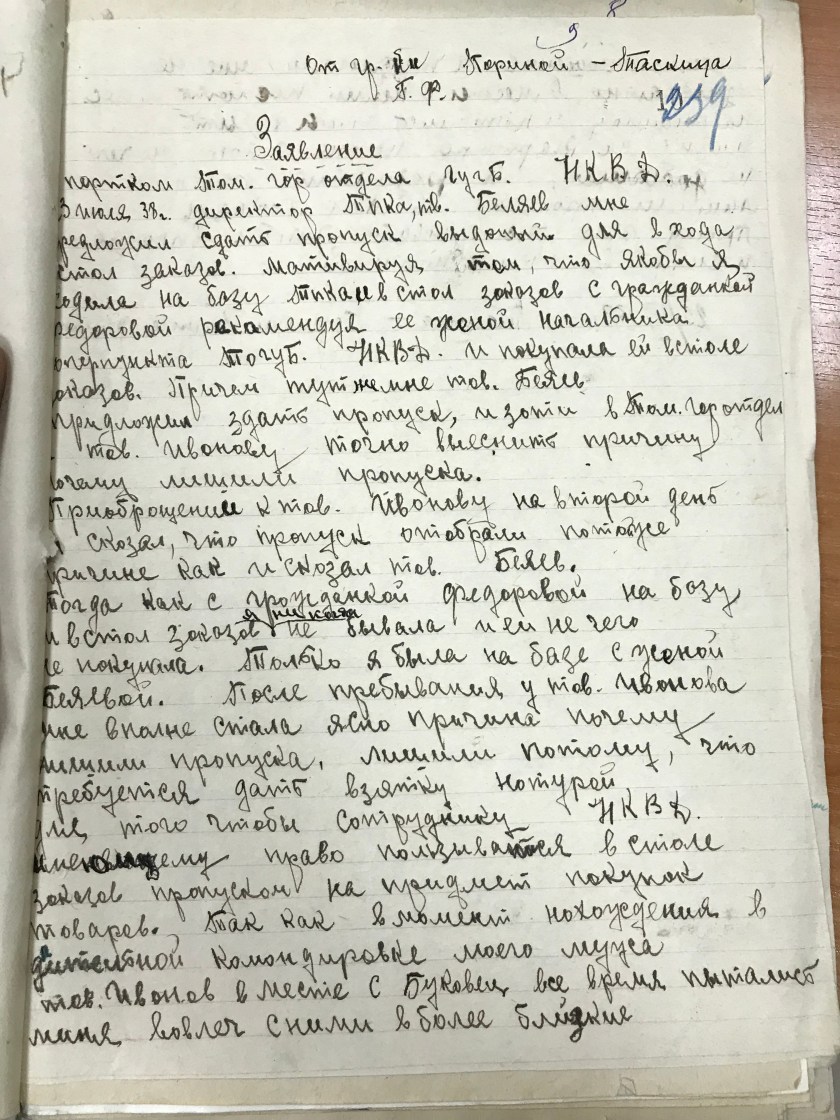 9 8
От гр. Париной - Таскица
Т. Ф.
239
Заявление
портком Том. гор отдела гугБ. НКВД.
3 июля 38г. директор Тпка, тв. Беляев мне
редложил сдать пропуск выдоный для входа
стол заказов. мативируя том, что якобы я
одила на базу Тпка и в стол зоказов с гражданкой
Федоровой рекамендуя ее женой начальника
оперпункта ТогуБ. НКВД. и покупала ей в столе
оказов. Причем тут же мне тов. Беяев
придложил здать пропуск, и зоти в Том. гор отдел
тов. Ивонову точно выеснить причину
почему лишили пропуска.
Приоброщении к тов. Ивонову на второй день
сказал, что пропуск отобрали потойже
причине как и сказал тов. Беяев.
Тогда как с грожданкой Федоровой на базу
и в стол заказов я ни когда не бывала и ей не чего
не покупала. Только я была на базе с женой
Беяевой. После пребывания у тов. Ивонова
мне вполне стала ясно причина почему
лишили пропуска, лишили потому, что
требуется дать взятку нотурой
для того чтобы сотруднику НКВД.
имеющему право пользыватся в столе
заказов пропуском на придмет покупок
товаров. Так как в момент нохождения в
дительной командировке моего мужа
тов. Ивонов в месте с Буковец все время пыталист
миня вовлеч с ними в более близкие